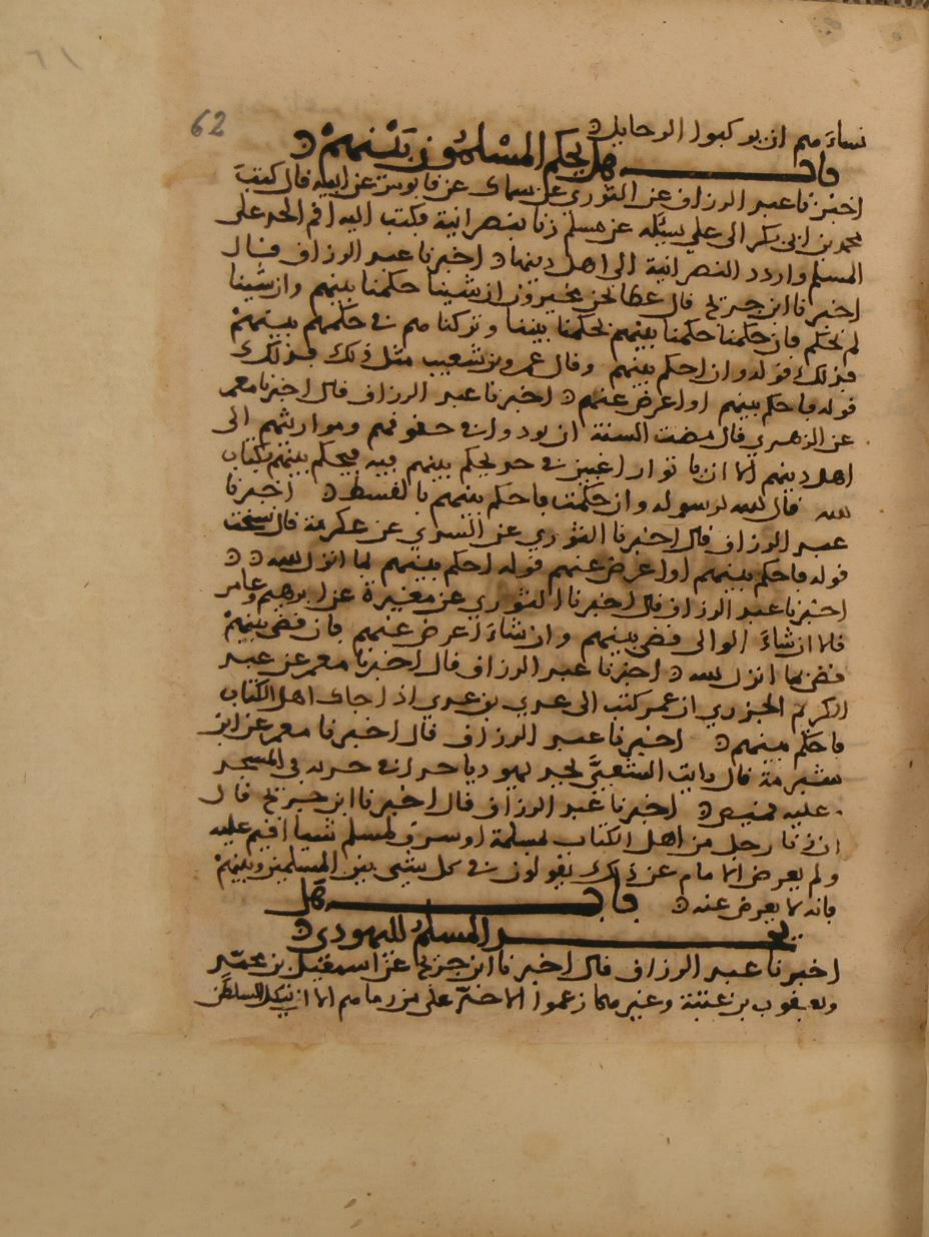 62
نساءهم ان يركبوا الرحايل
باب هل يحكم المسلمون بينهم
اخبرنا عبد الرزاق عن الثوري عن سماك عن قابوس عن ابيه قال كتب
محمد بن ابي بكر الى علي يسئله عن مسلم زنا بنصرانية فكتب اليه اقم الحد على
المسلم واردد النصرانية الى اهل دينها اخبرنا عبد الرزاق قال
اخبرنا ابن جريج قال عطا نحن مخيرون ان شينا حكمنا بينهم وان شينا
لم نحكم فان حكمنا حكمنا بينهم بحكمنا بيننا وتركناهم في حكمهم بينهم
فذلك قوله وان احكم بينهم وقال عمرو بن شعيب مثل ذلك فذلك
قوله فاحكم بينهم او اعرض عنهم اخبرنا عبد الرزاق قال اخبرنا معمر
عن الزهري قال مضت السنة ان يردوا في حقوقهم ومواريثهم الى
اهل دينهم الا ان ياتوا راغبين في حد يحكم بينهم فيه فيحكم بينهم بكتاب
الله قال الله لرسوله وان حكمت فاحكم بينهم بالقسط اخبرنا
عبد الرزاق قال اخبرنا الثوري عن السدي عن عكرمة قال نسخت
قوله فاحكم بينهم او اعرض عنهم قوله احكم بينهم بما انزل الله
اخبرنا عبد الرزاق قال اخبرنا الثوري عن مغيرة عن ابرهيم وعامر
قالا ان شاء الوالي قضى بينهم وان شاء اعرض عنهم فان قضى بينهم
قضى بما انزل الله اخبرنا عبد الرزاق قال اخبرنا معمر عن عبد
الكريم الجزري ان عمر كتب الى عدي بن عدي اذا جاك اهل الكتاب
فاحكم بينهم اخبرنا عبد الرزاق قال اخبرنا معمر عن ابن
شبرمة قال رايت الشعبي يحد يهوديا حدا في حريه في المسجد
عليه قميص اخبرنا عبد الرزاق قال اخبرنا ابن جريج قال
ان زنا رجل من اهل الكتاب بمسلمة او سرق لمسلم شيا اقيم عليه
ولم يعرض الامام عن ذلك يقولون في كل شي بين المسلمين وبينهم
فانه لا يعرض عنه باب هل
يحد المسلم لليهودي
اخبرنا عبد الرزاق قال اخبرنا ابن جريج عن اسمعيل بن محمد
ويعقوب بن عتبة وغيرهما زعموا الا حد على من رماهم الا ان ينكل السلطن